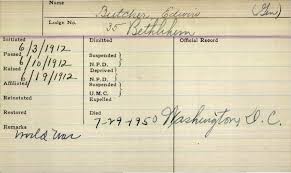 Name Butcher, Edwin (Gen)
Lodge No. 35 Bethlehem
Initiated 6/3/1912 Dimitted Official Record
Passed 6/10/1912 Suspended
N.P.D.
Raised 6/19/1912 Deprived
N.P.D.
Affiliated Suspended
U.M.C.
Reinstated Expelled
Restored Died 7-29-1950 Washington, D.C.
Remarks
World War